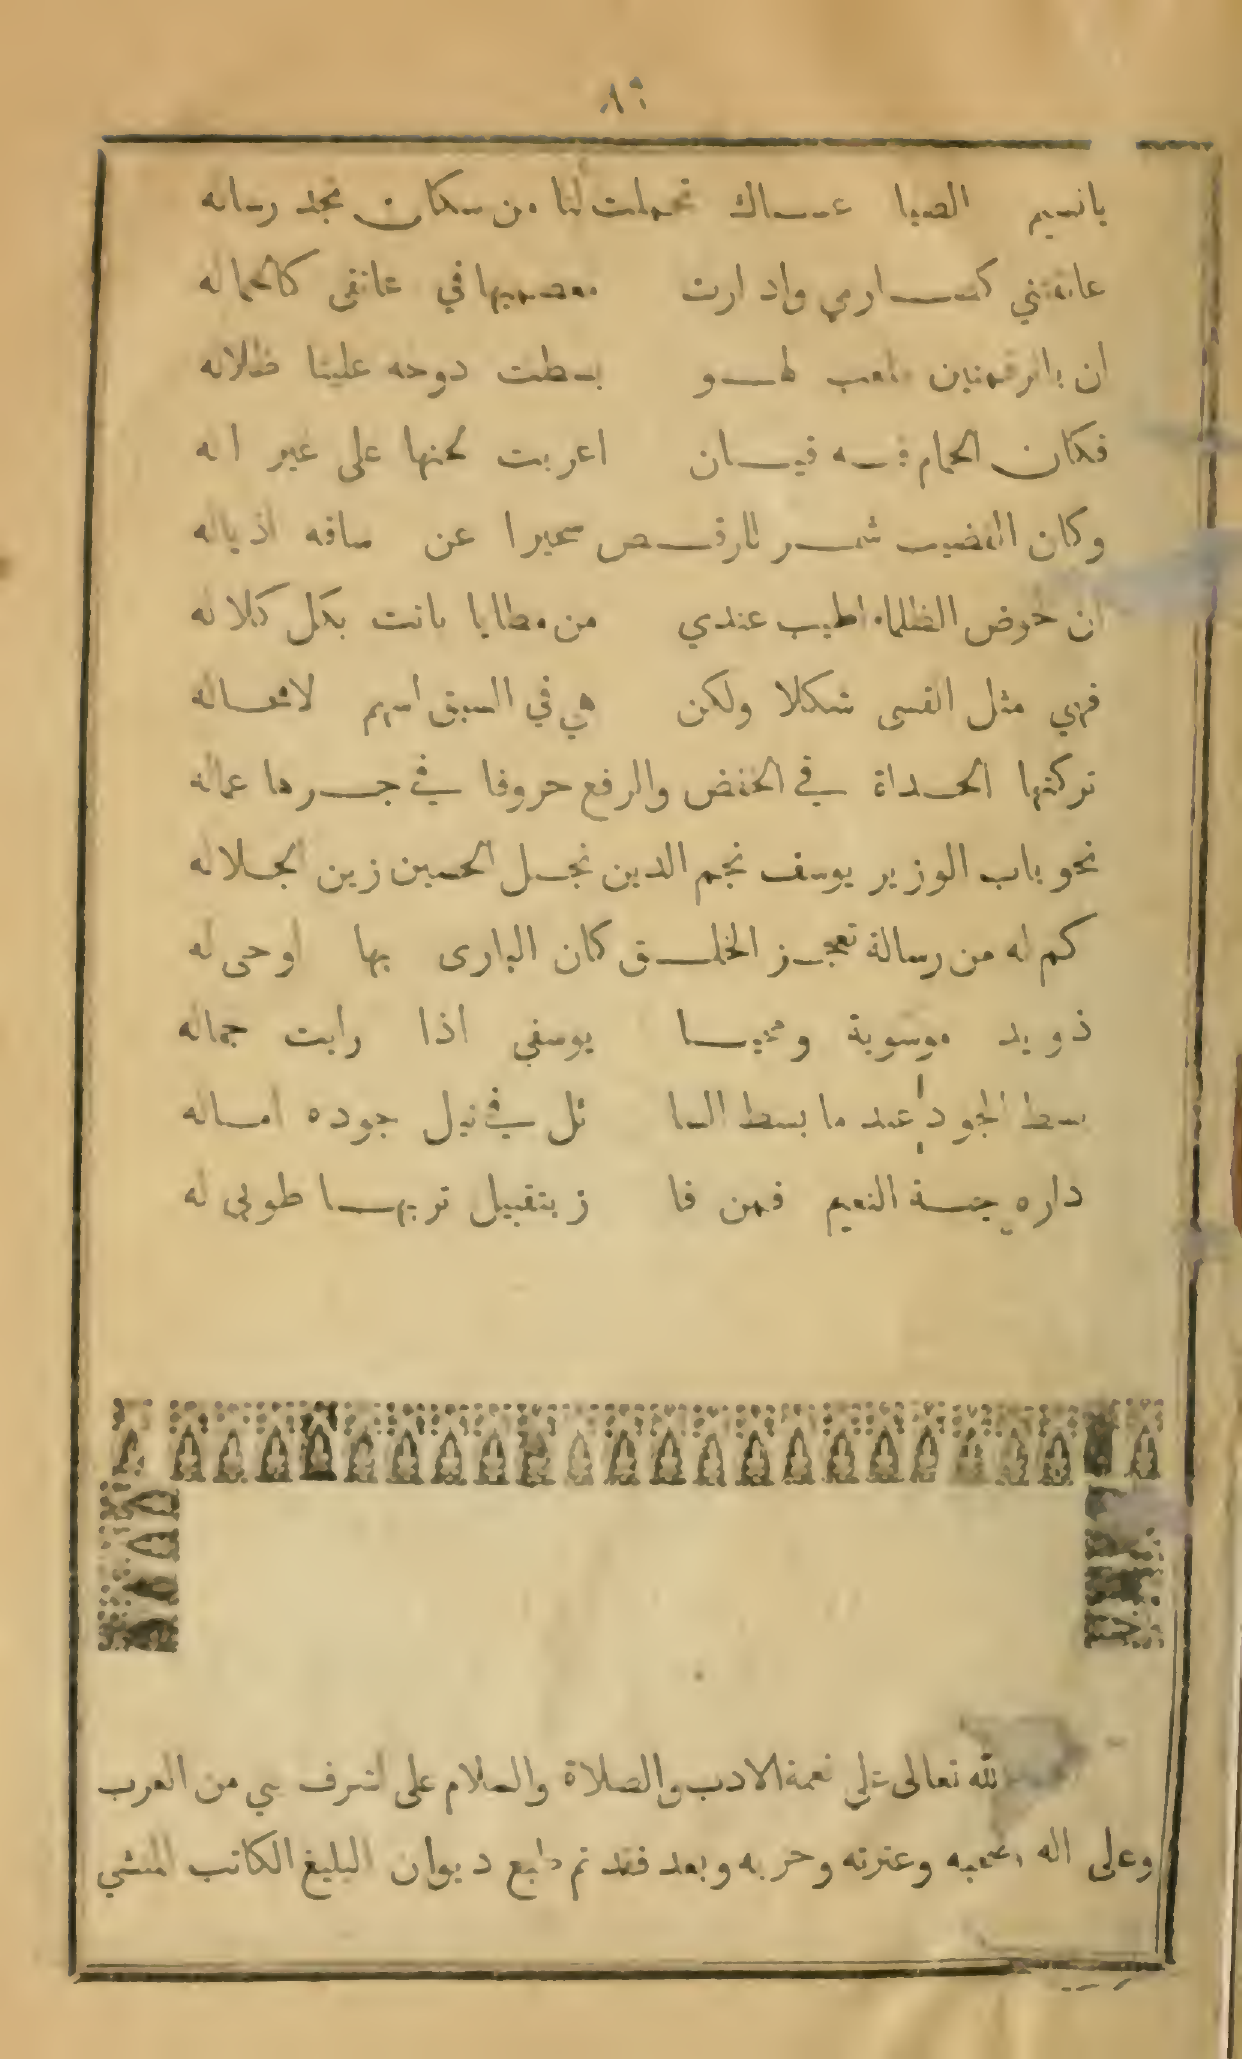 ٨٩
يانسيم الصبا عساك تحملت لنا من سكان نجد رساله
عانقتني كسوارمي وادارت معصميها في عاتقي كالحماله
ان بالرقمتين ملعب لهو بسطت دوحه علينا ظلاله
فكان الحمام فيه قيان اعربت لحنها على غير اله
وكان القضيب شمر للرقص سحيرا عن ساقه اذياله
ان خوض الظلماء اطيب عندي من مطايا باتت بكل كلاله
فهي مثل القسى شكلا ولكن هي في السبق اسهم لامحاله
تركتها الحداة في الخفض والرفع حروفا في جرها عماله
نحو باب الوزير يوسف نجم الدين نجل الحسين زين الجلاله
كم له من رسالة تعجز الخلق كان البارى بها اوحى له
ذويد موسوية ومحيا يوسفي اذا رايت جماله
بسط الجود عند ما بسط السا ئل في نيل جوده امساله
داره جنة النعيم فمن فا ز بتقبيل تربها طوبى له
لله تعالى على نعمة الادب والصلاة والسلام على اشرف من العرب
وعلى اله وصحبه وعترته وحزبه وبعد فقد تم طبع ديوان البليغ الكاتب المنشي